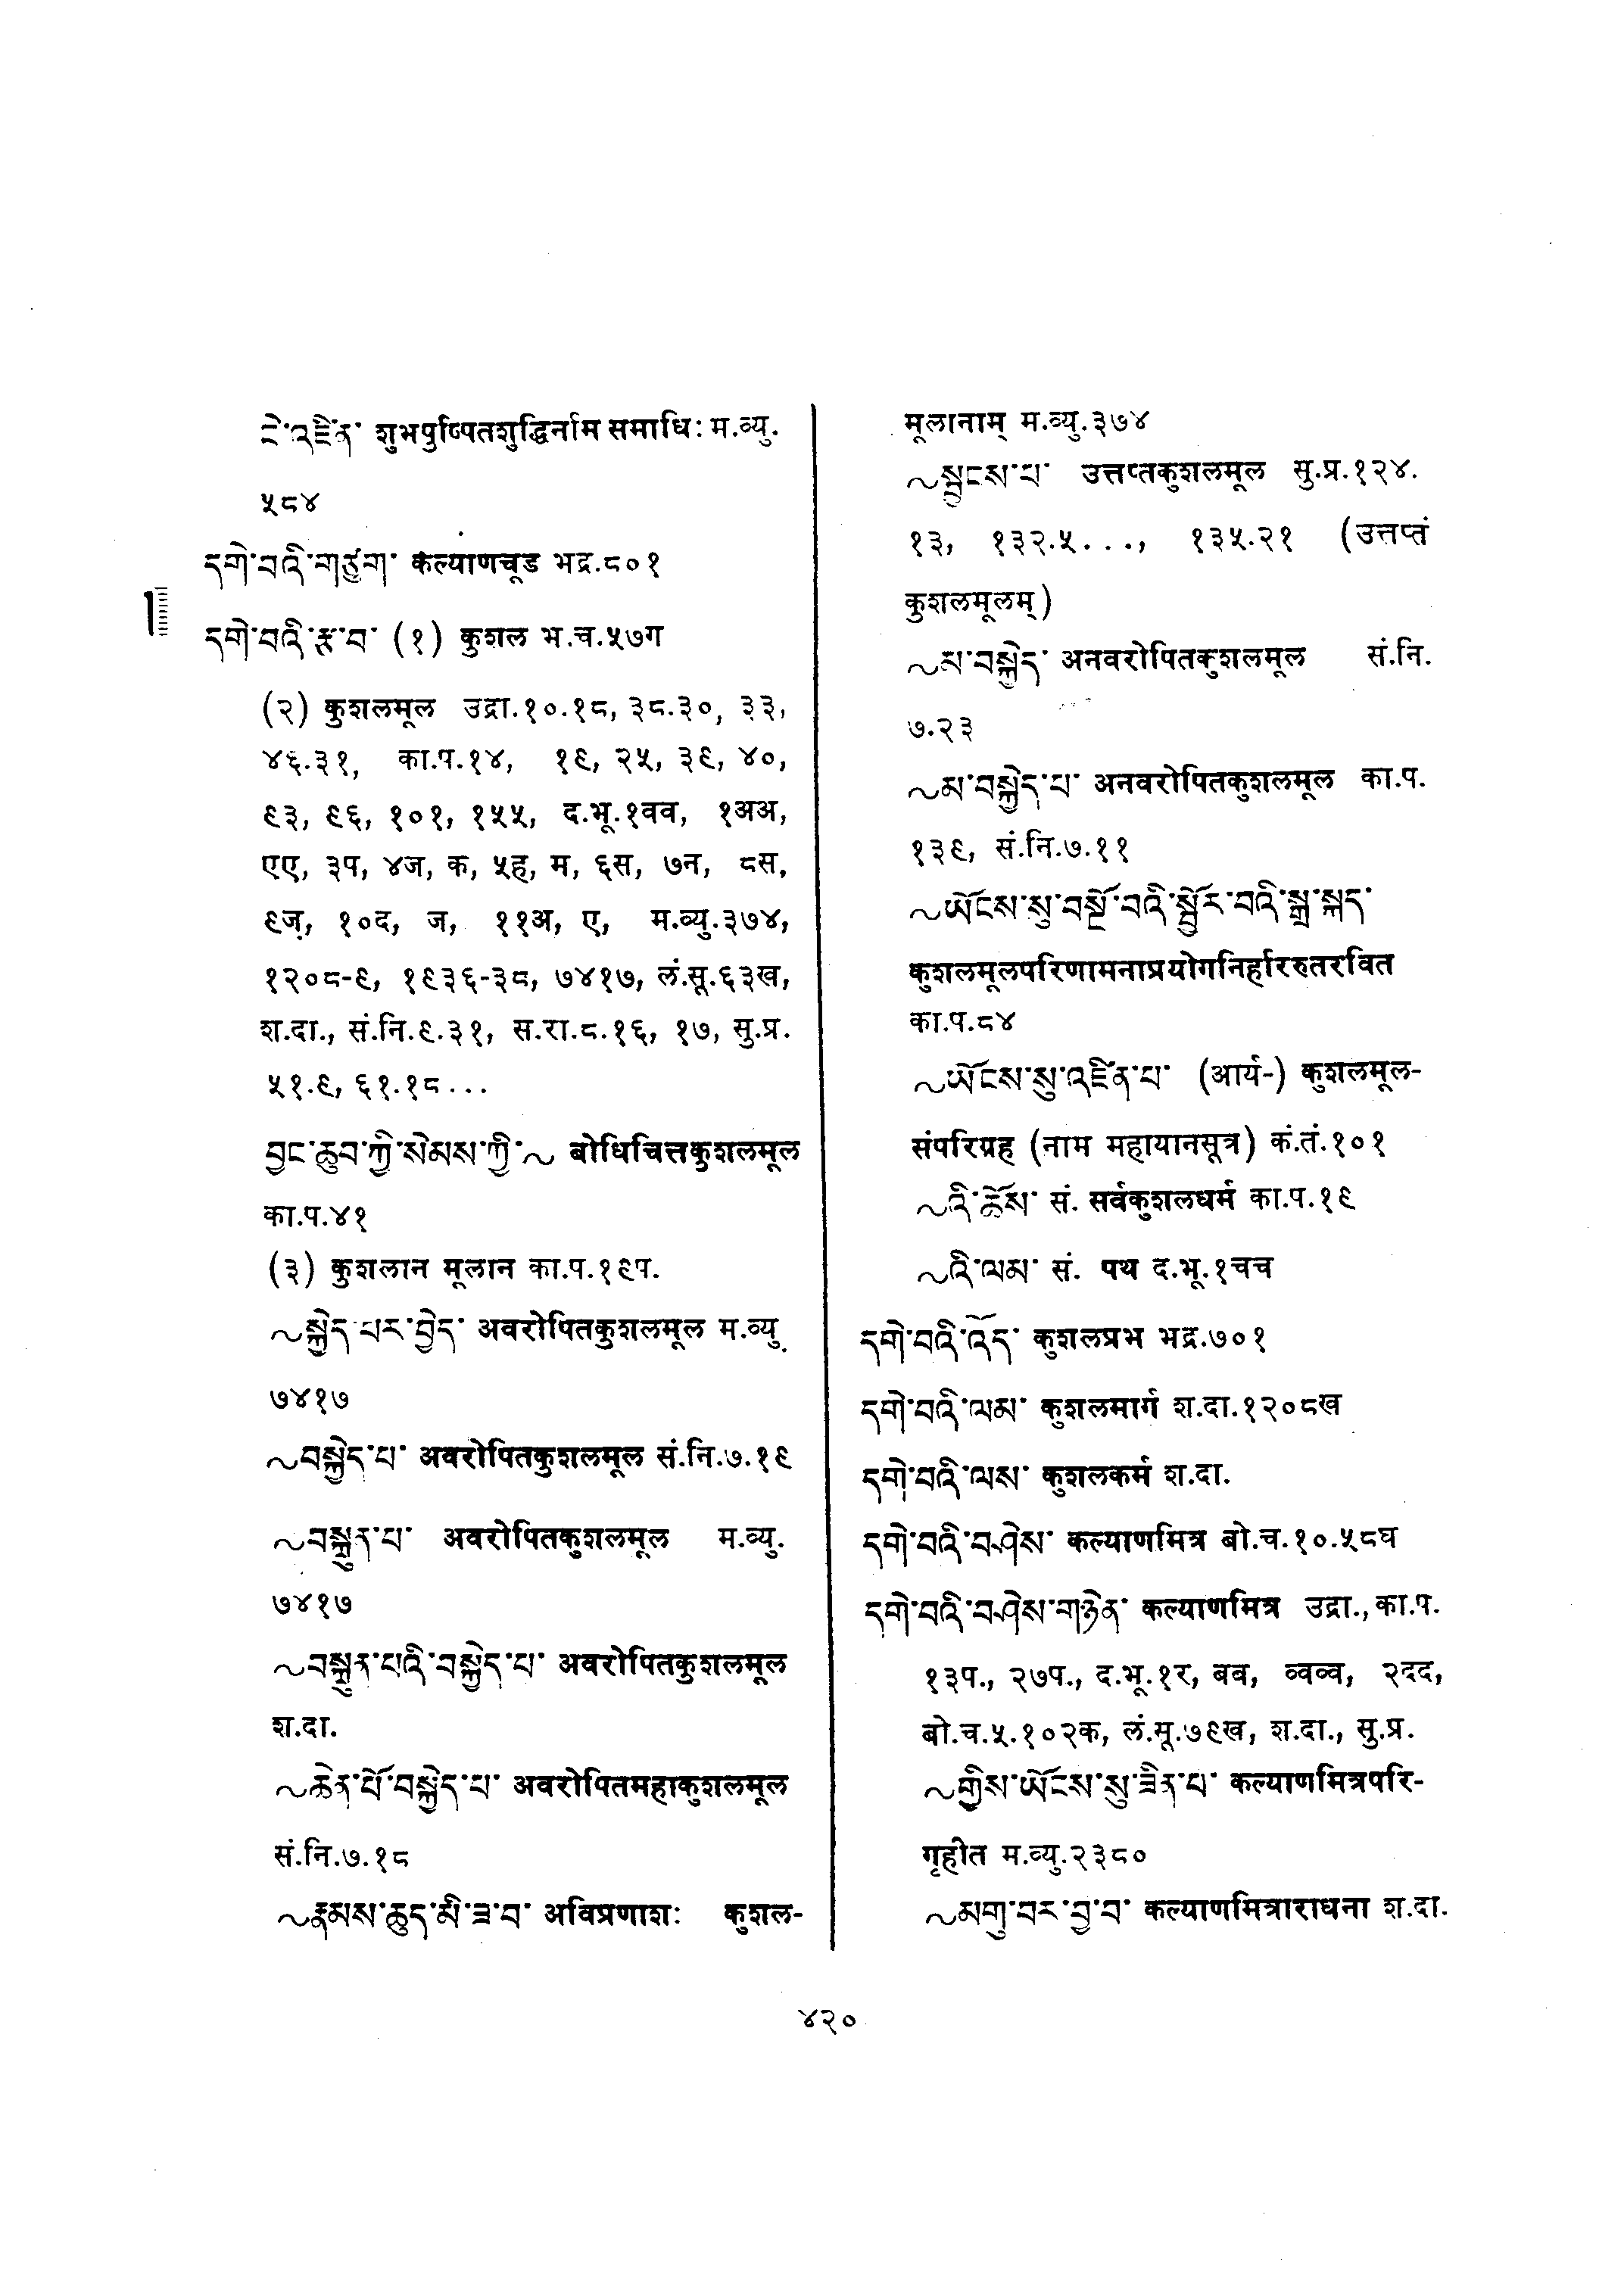 ངེ་འཛིན་ शुभपुष्पितशुद्धिर्नाम समाधिः म.व्यु.
५८४
དགེ་བའི་གཙུག་ कल्याणचूड भद्र.८०१
དགེ་བའི་རྩ་བ་ (१) कुशल भ.च.५७ग
(२) कुशलमूल उद्रा.१०.१८, ३८.३०, ३३,
४६.३१, का.प.१४, १९, २५, ३९, ४०,
९३, ९६, १०१, १५५, द.भू.१वव, १अअ,
एए, ३प, ४ज, क, ५ह, म, ६स, ७न, ८स,
९ज, १०द, ज, ११अ, ए, म.व्यु.३७४,
१२०८-९, १९३६-३८, ७४१७, लं.सू.६३ख,
श.दा., सं.नि.९.३१, स.रा.८.१६, १७, सु.प्र.
५१.९, ६१.१८...
བྱང་ཆུབ་ཀྱི་སེམས་ཀྱི་~ बोधिचित्तकुशलमूल
का.प.४१
(३) कुशलान मूलान का.प.१९प.
~སྐྱེད་པར་བྱེད་ अवरोपितकुशलमूल म.व्यु.
७४१७
~བསྐྱེད་པ་ अवरोपितकुशलमूल सं.नि.७.१९
~བསྐྲུན་པ་ अवरोपितकुशलमूल म.व्यु.
७४१७
~བསྐྲུན་པའི་བསྐྱེད་པ་ अवरोपितकुशलमूल
श.दा.
~ཆེན་པོ་བསྐྱེད་པ་ अवरोपितमहाकुशलमूल
सं.नि.७.१८
~རྣམས་ཆུད་མི་ཟ་བ་ अविप्रणाशः कुशल-
मूलानाम् म.व्यु.३७४
~སྦྱངས་པ་ उत्तप्तकुशलमूल सु.प्र.१२४.
१३, १३२.५..., १३५.२१ (उत्तप्तं
कुशलमूलम्)
~མ་བསྐྱེད་ अनवरोपितकुशलमूल सं.नि.
७.२३
~མ་བསྐྱེད་པ་ अनवरोपितकुशलमूल का.प.
१३९, सं.नि.७.११
~ཡོངས་སུ་བསྔོ་བའི་སྦྱོར་བའི་སྒྲ་སྐད་
कुशलमूलपरिणामनाप्रयोगनिर्हाररुतरवित
का.प.८४
~ཡོངས་སུ་འཛིན་པ་ (आर्य-) कुशलमूल-
संपरिग्रह (नाम महायानसूत्र) कं.तं.१०१
~འི་ཆོས་ सं. सर्वकुशलधर्म का.प.१९
~འི་ལམ་ सं. पथ द.भू.१चच
དགེ་བའི་འོད་ कुशलप्रभ भद्र.७०१
དགེ་བའི་ལམ་ कुशलमार्ग श.दा.१२०८ख
དགེ་བའི་ལས་ कुशलकर्म श.दा.
དགེ་བའི་བཤེས་ कल्याणमित्र बो.च.१०.५८घ
དགེ་བའི་བཤེས་གཉེན་ कल्याणमित्र उद्रा., का.प.
१३प., २७प., द.भू.१र, बब, व्वव्व, २दद,
बो.च.५.१०२क, लं.सू.७९ख, श.दा., सु.प्र.
~གྱིས་ཡོངས་སུ་ཟིན་པ་ कल्याणमित्रपरि-
गृहीत म.व्यु.२३८०
~མགུ་བར་བྱ་བ་ कल्याणमित्राराधना श.दा.
४२०